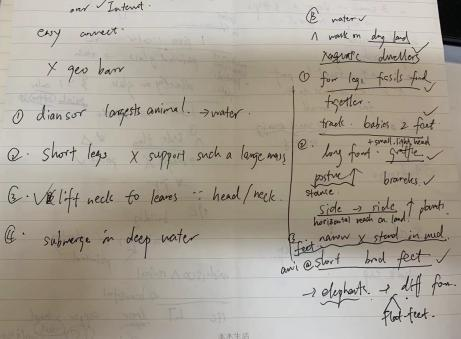 over Internet.
easy connect.
X geo barr
① diansor largests animal. → water.
②. short legs X support such a large mass
③. lift neck to leaves ∵ head/neck.
④. submerge in deep water
② water ✓
∧ walk on dry land ✓
Xaquatic dwellers
① for legs fossils find ✓
together.
track babies 2 feet ✓
+ small, light, head
②. long giraffe ✓
posture ↑ branches ✓
stance.
side → side ↑ plants
horizontal reach on land
③ narrow X stand in mud.
feet
ani @short brod feet ✓
→ elephants. → diff
flat-feet.